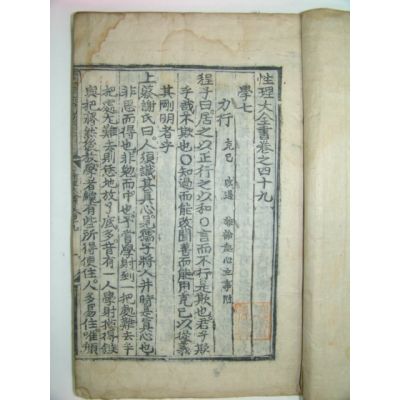 性理大全書卷之四十九
學七
力行 克己 改過 雜論處心立事附
程子曰居之以正行之以和○言而不行是欺也君子欺
乎哉不欺也○知過而能改聞善而能用克己以從義
其剛明者乎
上蔡謝氏曰人須識其真心見孺子將入井時是真心也
非思而得也非勉而中也予嘗學射到一把處難去半
把處尤難去則恁地放了底多昔有一人學射得鏃
與把齊然後放學者纔有些所得便住人多易住唯顏